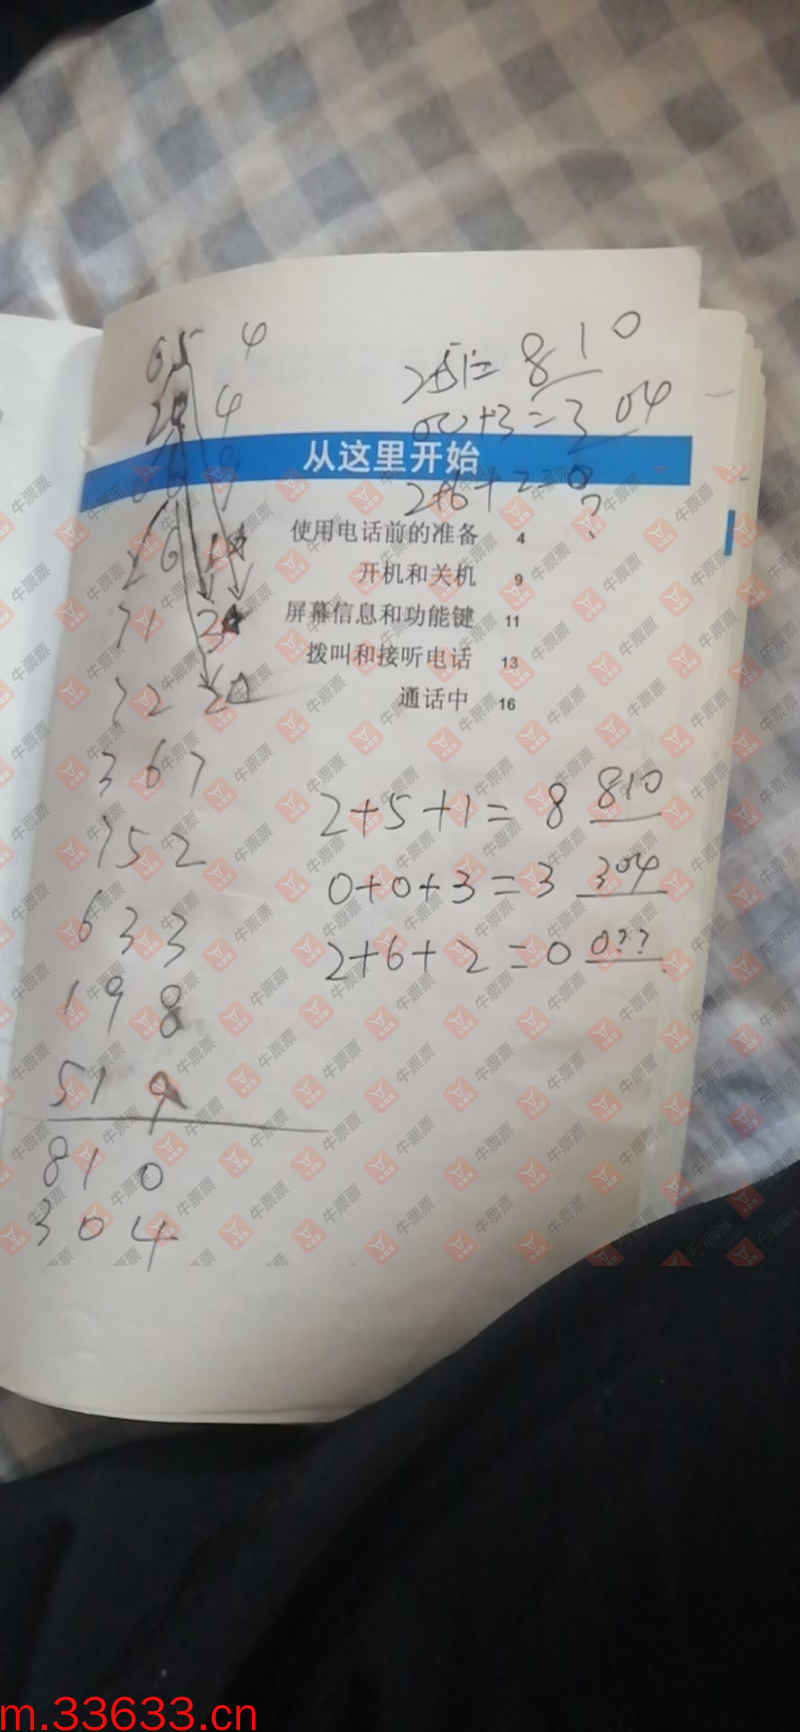 654
2+51=810
4
+3=304
从这里开始
2+6+2=0?
使用电话前的准备 4
开机和关机 9
屏幕信息和功能键 11
拨叫和接听电话 13
通话中 16
71
72
367
752
633
198
519
810
304
2+5+1=8 810
0+0+3=3 304
2+6+2=0 0??
牛票票
m.33633.cn